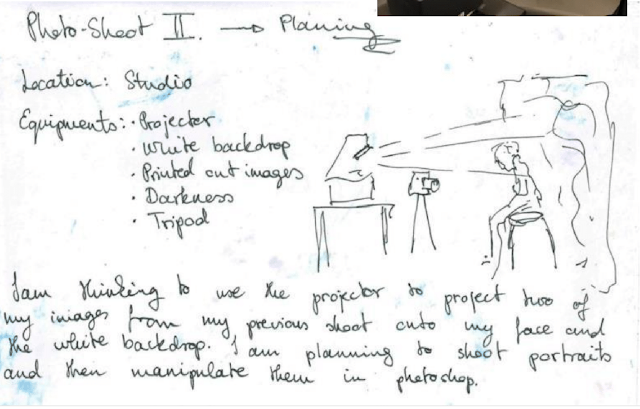 Photo-Shoot II. → Planing
Location: Studio
Equipments: · Projector
· White backdrop
· Printed out images
· Darkness
· Tripod
I am thinking to use the projector to project two of
my images from my previous shoot onto my face and
the white backdrop. I am planning to shoot portraits
and then manipulate them in photoshop.